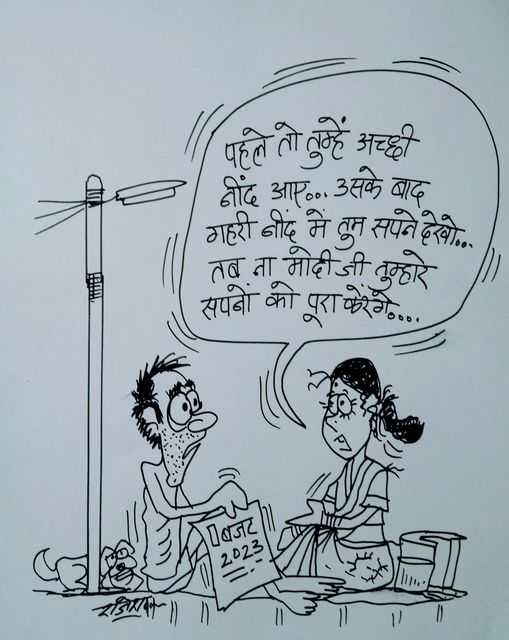 पहले तो तुम्हें अच्छी
नींद आए... उसके बाद
गहरी नींद में तुम सपने देखो...
तब ना मोदी जी तुम्हारे
सपनों को पूरा करेंगे....
बजट
2023